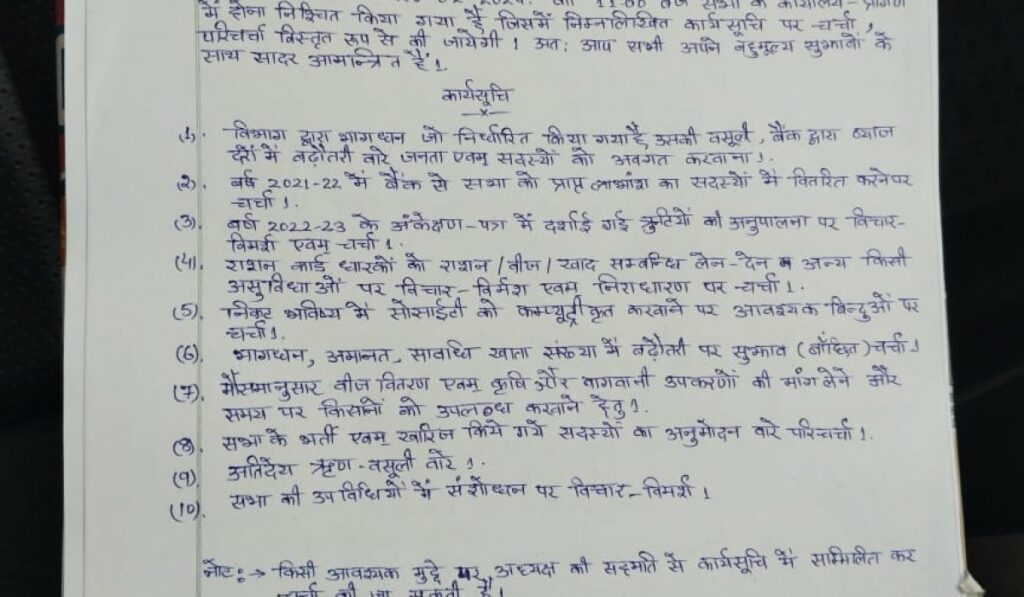 11:00 बजे सभा के कार्यालय-प्रांगण
में होना निश्चित किया गया है जिसमें निम्नलिखित कार्यसूचि पर चर्चा,
परिचर्चा विस्तृत रूप से की जायेगी। अत: आप सभी अपने बहुमूल्य सुझावों के
साथ सादर आमन्त्रित हैं।.
कार्यसूचि
(1). विभाग द्वारा भागधन जो निर्धारित किया गया है, उसकी वसूली, बैंक द्वारा ब्याज
दरों में बढ़ौतरी बारे जनता एवम् सदस्यों को अवगत करवाना।.
(2). वर्ष 2021-22 में बैंक से सभा को प्राप्त लाभांश का सदस्यों में वितरित करने पर
चर्चा।.
(3). वर्ष 2022-23 के अंकेक्षण-पत्र में दर्शाई गई त्रुटियों की अनुपालना पर विचार-
विमर्श एवम् चर्चा।.
(4). राशन कार्ड धारकों के राशन/बीज/खाद सम्बन्धि लेन-देन व अन्य किसी
असुविधाओं पर विचार-विर्मश एवम् निराधारण पर चर्चा।.
(5). निकट भविष्य में सोसाईटी को कम्प्यूट्रीकृत करवाने पर आवश्यक बिन्दुओं पर
चर्चा।.
(6). भागधन, अमानत, सावधि खाता संख्या में बढ़ौतरी पर सुझाव (बाँछित) चर्चा।
(7). मौसमानुसार बीज वितरण एवम् कृषि और बागवानी उपकरणों की मांग लेने और
समय पर किसानों को उपलब्ध करवाने हेतु।.
(8). सभा के भर्ती एवम् खारिज किये गये सदस्यों का अनुमोदन बारे परिचर्चा।.
(9). अतिदेय ऋण-वसूली बारे।.
(10). सभा की उपविधियों में संशोधन पर विचार-विमर्श।
नोट:→ किसी आवश्यक मुद्दे पर अध्यक्ष की सहमति से कार्यसूचि में सम्मिलित कर
चर्चा की जा सकती है।